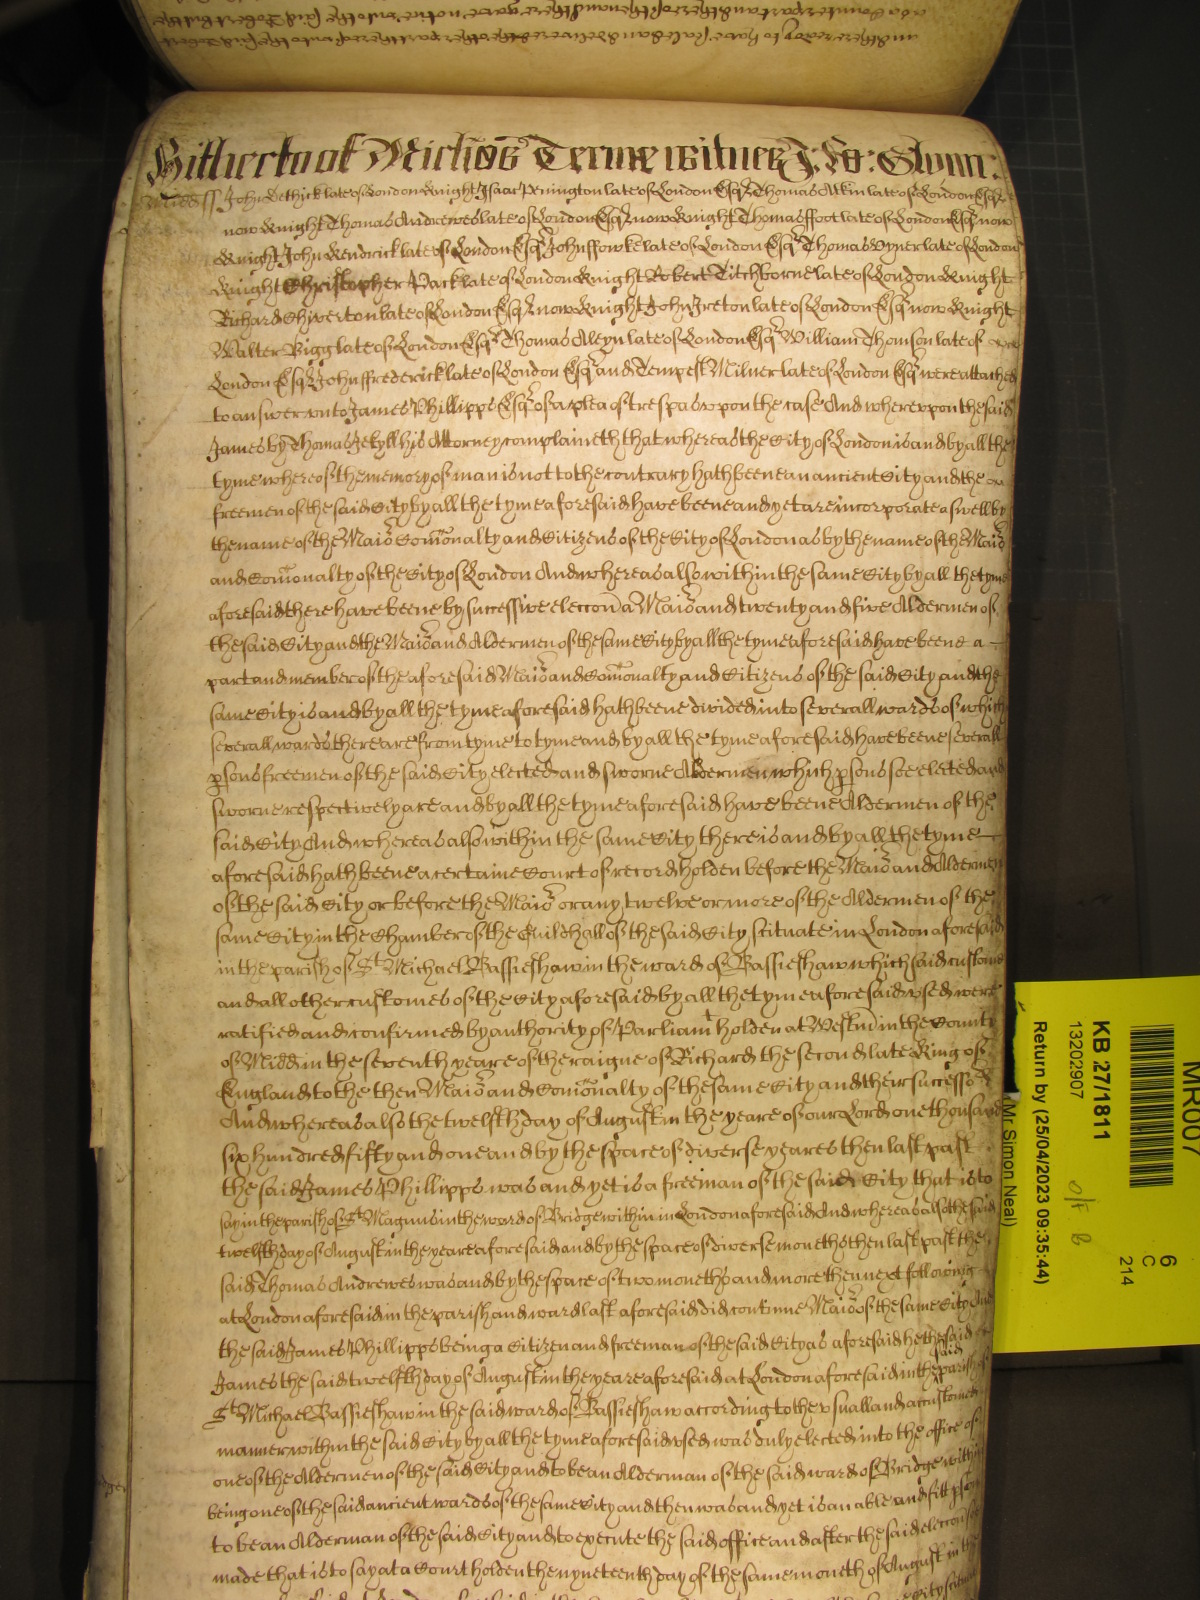 Hitherto of Mich̄is Terme witnes J. Ro: Glynn:
Midd ss John Dethick late of London Knight Isaac Penington late of London Esqr Thomas Atkin late of London Esqr
now Knight Thomas Andrewes late of London Esqr now Knight Thomas ffoot late of London Esqr now
Knight John Kendrick late of London Esqr John ffowke late of London Esqr Thomas Vyner late of London
Knight Christopher Pack late of London Knight Robert Titchborne late of London Knight
Richard Chiverton late of London Esqr now Knight John Ireton late of London Esqr now Knight
Walter Bigg late of London Esqr Thomas Aleyn late of London Esqr William Thomson late of
London Esqr John ffrederick late of London Esqr and Tempest Milner late of London Esqr were attached
to answer unto James Phillipps Esqr of a plea of trespas vpon the case And wherevpon the said
James by Thomas Jekyll his Attorney complaineth that whereas the City of London is and by all the
tyme whereof the memory of man is not to the contrary hath beene an ancient City and the
freemen of the said City by all the tyme aforesaid have beene and yet are incorporate aswell by
the name of the Maior Com̄onalty and Citizens of the City of London as by the name of the Maior
and Com̄onalty of the City of London And whereas also within the same City by all the tyme
aforesaid there have beene by successive elecc̄on a Maior and twenty and five Aldermen of
the said City and the Maior and Aldermen of the same City by all the tyme aforesaid have beene a
part and member of the aforesaid Maior and Com̄onalty and Citizens of the said City and the
same City is and by all the tyme aforesaid hath beene divided into severall wards of which
severall wards there are from tyme to tyme and by all the tyme aforesaid have beene severall
p̱sons freemen of the said City elected and sworne Aldermen which p̱sons soe elected and
sworne respectively are and by all the tyme aforesaid have beene Aldermen of the
said City And whereas also within the same City there is and by all the tyme
aforesaid hath beene a certaine Court of record holden before the Maior and Aldermen
of the said City or before the Maior or any twelve or more of the Aldermen of the
same City in the Chamber of the Guildhall of the said City scituate in London aforesaid
in the parish of St Michael Bassieshaw in the ward of Bassieshaw which said custome
and all other customes of the City aforesaid by all the tyme aforesaid vsed were
ratified and confirmed by authority of Parliamt holden at Westm̄ in the County
of Midd in the seventh yeare of the raigne of Richard the second late King of
England to the then Maior and Com̄onalty of the same City and their successors
And whereas also the twelfth day of August in the yeare of our Lord one thousand
six hundred fifty and one and by the space of diverse yeares then last past
the said James Phillipps was and yet is a freeman of the said City that is to
say in the parish of St Magnus in the ward of Bridge within in London aforesaid And whereas also the said
twelfth day of August in the yeare aforesaid and by the space of diverse moneths then last past the
said Thomas Andrewes was and by the space of two moneths and more then next following
at London aforesaid in the parish and ward last aforesaid did continue Maior of the same City And
the said James Phillipps being a Citizen and freeman of the said City as aforesaid he the said
James the said twelfth day of August in the yeare aforesaid at London aforesaid in the said parish of
St Michael Bassieshaw in the said ward of Bassieshaw according to the vsuall and accustomed
manner within the said City by all the tyme aforesaid vsed was duly elected into the office of
one of the Aldermen of the said City and to be an Alderman of the said ward of Bridge within
being one of the said ancient wards of the same City and then was and yet is an able and fitt p̱son
to be an Alderman of the said City and to execute the said office and after the said elecc̄on soe
made that is to say at a Court holden the nyneteenth day of the same moneth of August in the
MR007
KB 27/1811
13202907
Return by (25/04/2023 09:35:44)
Mr Simon Neal)
6
C
214